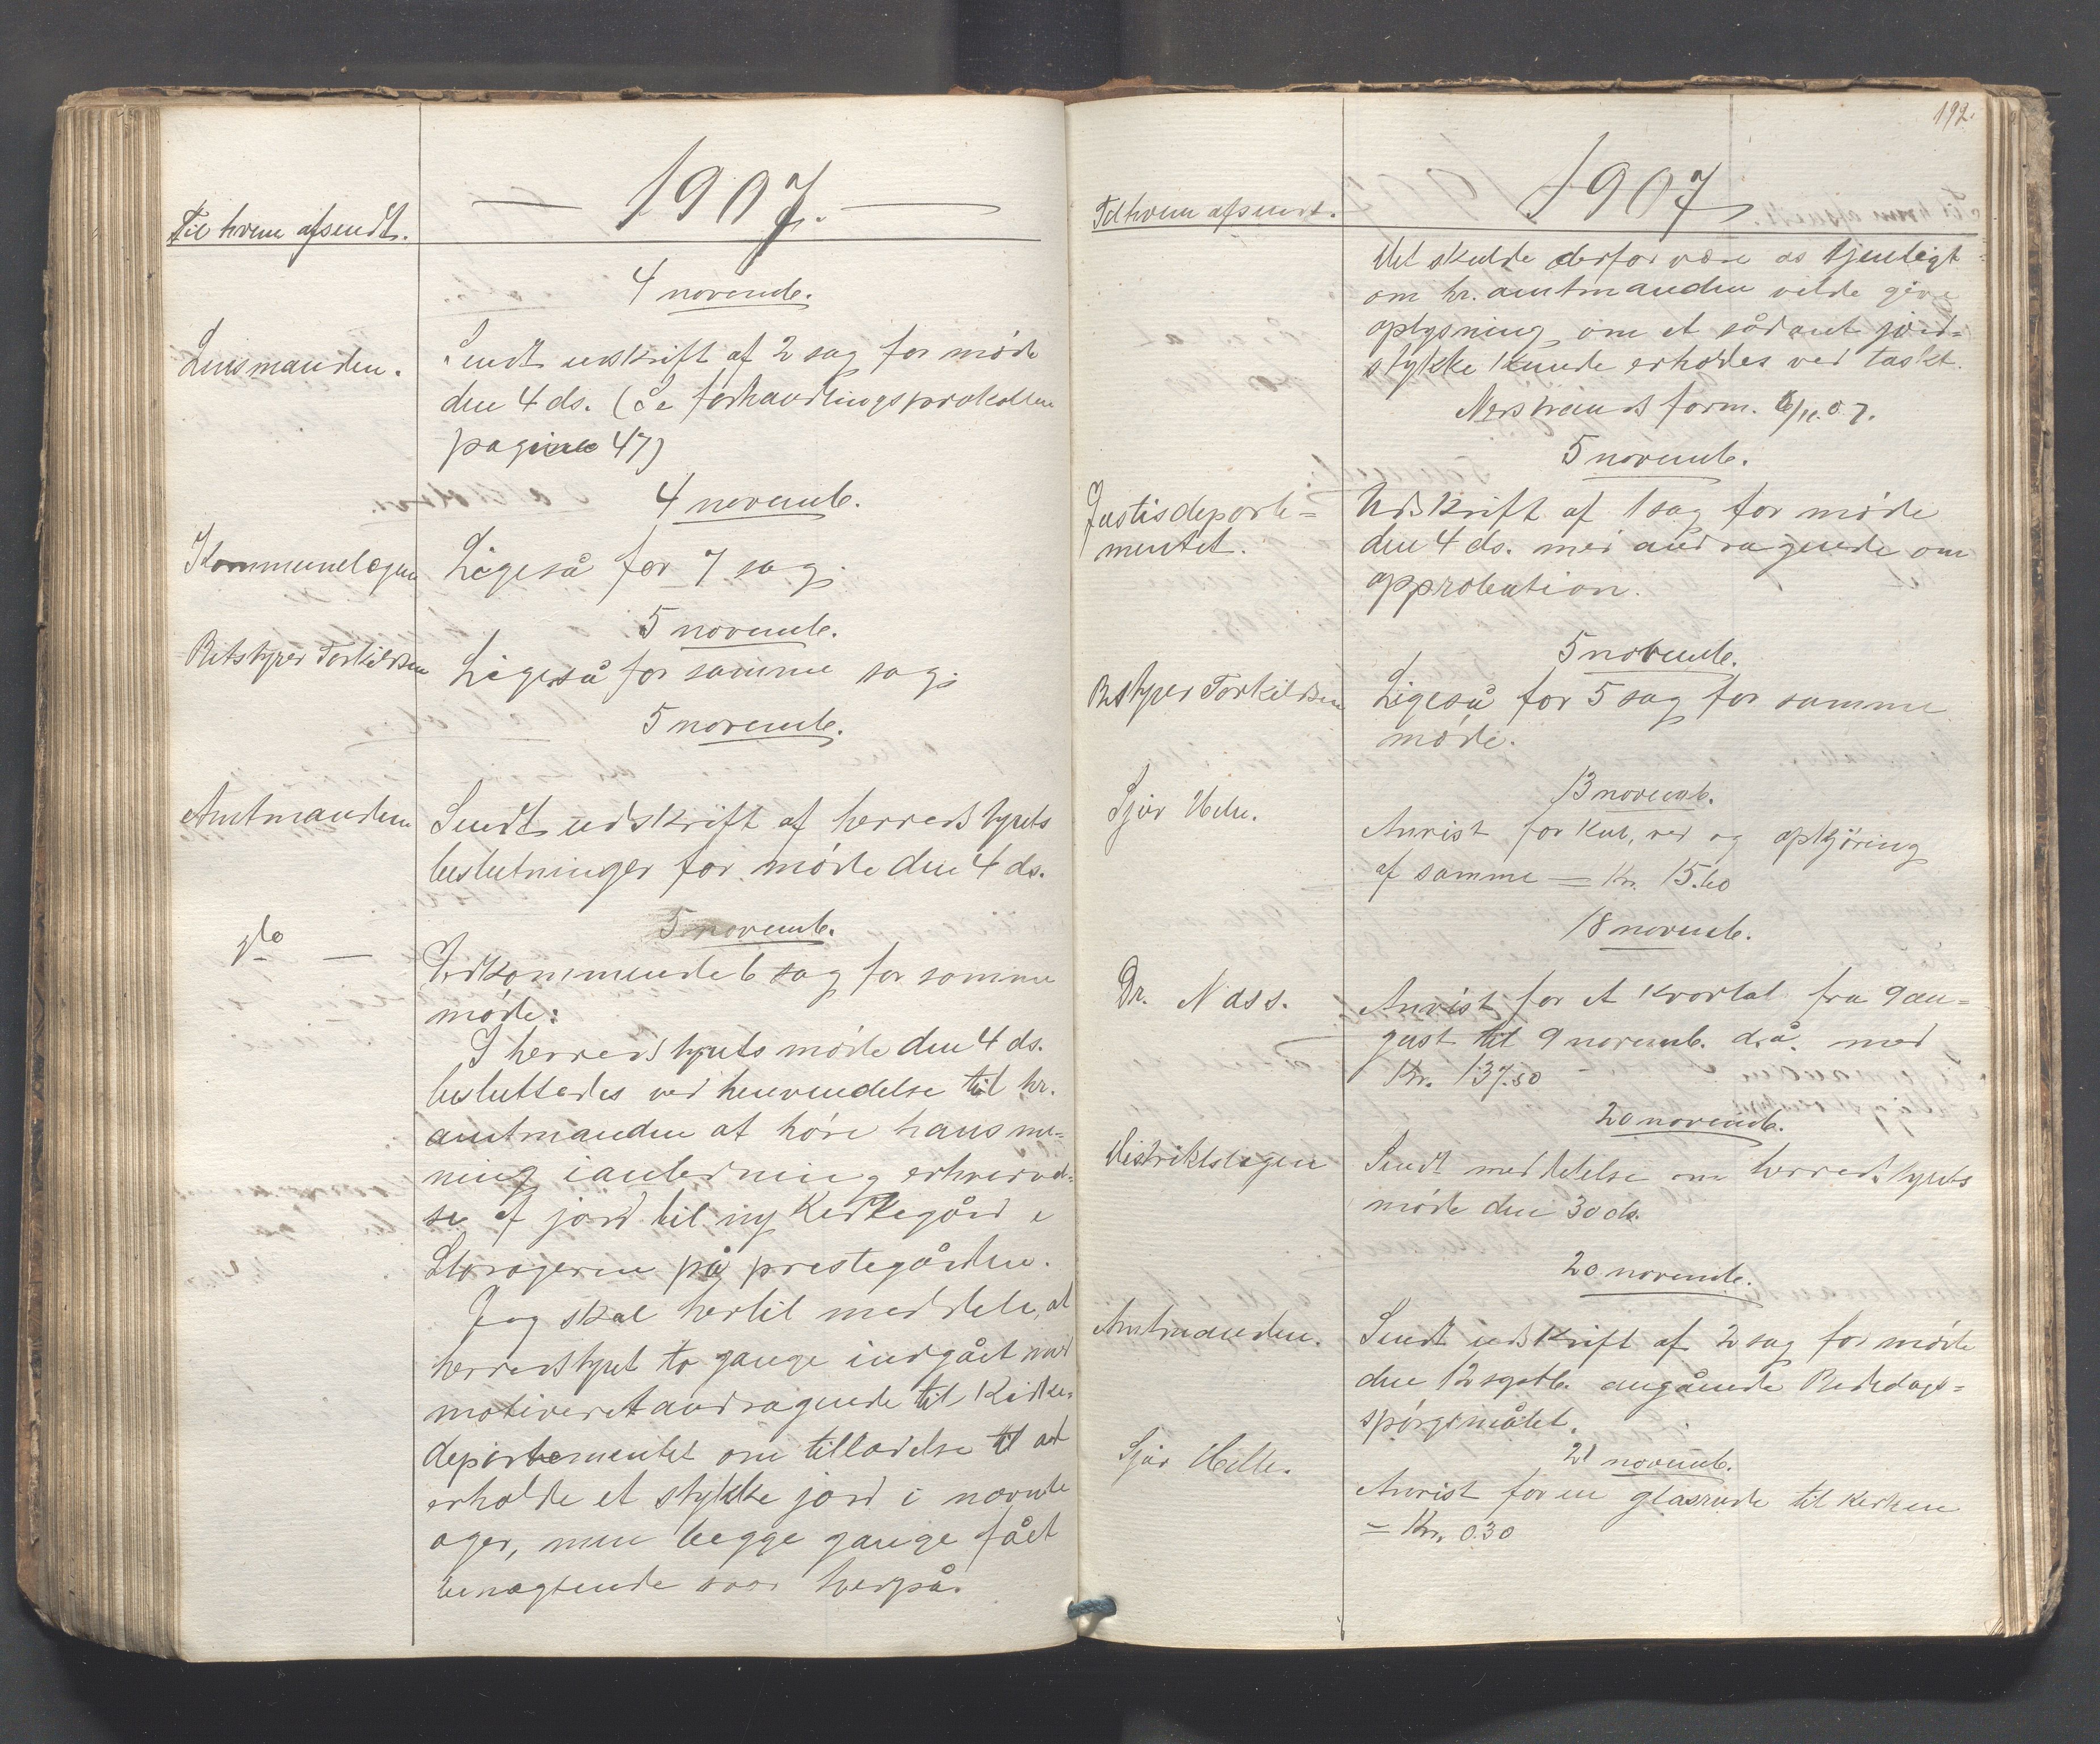 Til hvem afsendt.
— 1907. —
4 novemb.
Lensmanden.
Sendt udskrift af 2 sag for møde
den 4 ds. (Se forhandlingsprotokollen
pagina 47)
4 novemb.
Kommunelægen
Ligeså for 7 sag.
5 novemb.
Bestyrer Torkildsen
Ligeså for samme sag.
5 novemb.
Amtmanden
Sendt udskrift af herredstyrets
beslutninger for møde den 4 ds.
5 novemb.
do —
Vedkommende 6 sag for samme
møde:
I herredstyrets møde den 4 ds.
besluttedes ved henvendelse til hr.
amtmanden at høre hans me-
ning i anledning erhvervel-
se af jord til ny Kirkegård i
Storageren på prestegården.
Jeg skal hertil meddele, at
herredstyret to gange indgået med
motiveret andragende til Kirke-
departementet om tilladelse til at
erholde et stykke jord i nævnte
ager, men begge gange fået
benægtende svar herpå.
192.
Til hvem afsendt.
1907
Det skulde derfor være os tjenligt
om hr. amtmanden vilde give
oplysning, om et sådant jord-
stykke kunde erholdes ved takst.
Nerstrands form. 6/11.07.
5 novemb.
Justisdeparte-
mentet.
Udskrift af 1 sag for møde
den 4 ds. med andragende om
approbation.
5 novemb.
Bestyrer Torkildsen
Ligeså for 5 sag for samme
møde.
13 novemb.
Sjur Helle.
Anvist for kul, ved og opkjøring
af samme = Kr. 15.60
18 novemb.
Dr. Næss.
Anvist for et kvartal fra 9 au-
gust til 9 novemb. d.å. med
Kr. 137.50
20 novemb.
Distriktslægen
Sendt meddelelse om herredstyrets
møde den 30 ds.
20 novemb.
Amtmanden.
Sendt udskrift af 2 sag for møde
den 12 septb. angående Bededags-
spørgsmålet.
21 novemb.
Sjur Helle.
Anvist for en glasrude til kirken
= Kr. 0.30